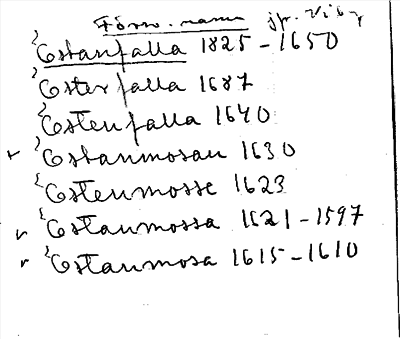 Förv. namn jfr. Viby
Østanfalla 1825-1650
Østerfalla 1687
Østenfalla 1640
Østanmosan 1630
Østenmosse 1623
Østanmossa 1621-1597
Østanmosa 1615-1610